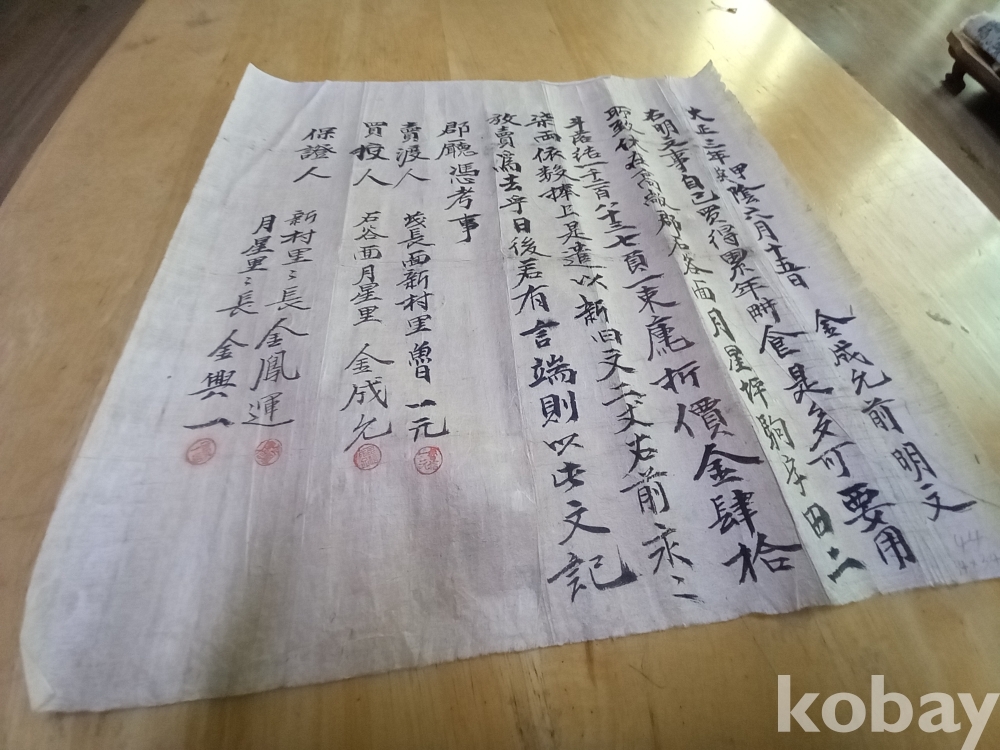 大正三年 甲陰六月十五日 金成允前明文
右明文事自己買得累年耕食是多可要用
所致伏在高敞郡石谷面月星坪駒字田二
斗落結一百 七負一束廤折價金肆拾
柒両依数捧上是遣以新旧文二丈右前永〻
放賣爲去乎日後若有言端則以此文記
郡廳憑考事
賣渡人 長面新村里曺一元
買 人 石谷面月星里 金成允
保證人 新村里〻長 金鳳運
月星里〻長 金興一
kobay